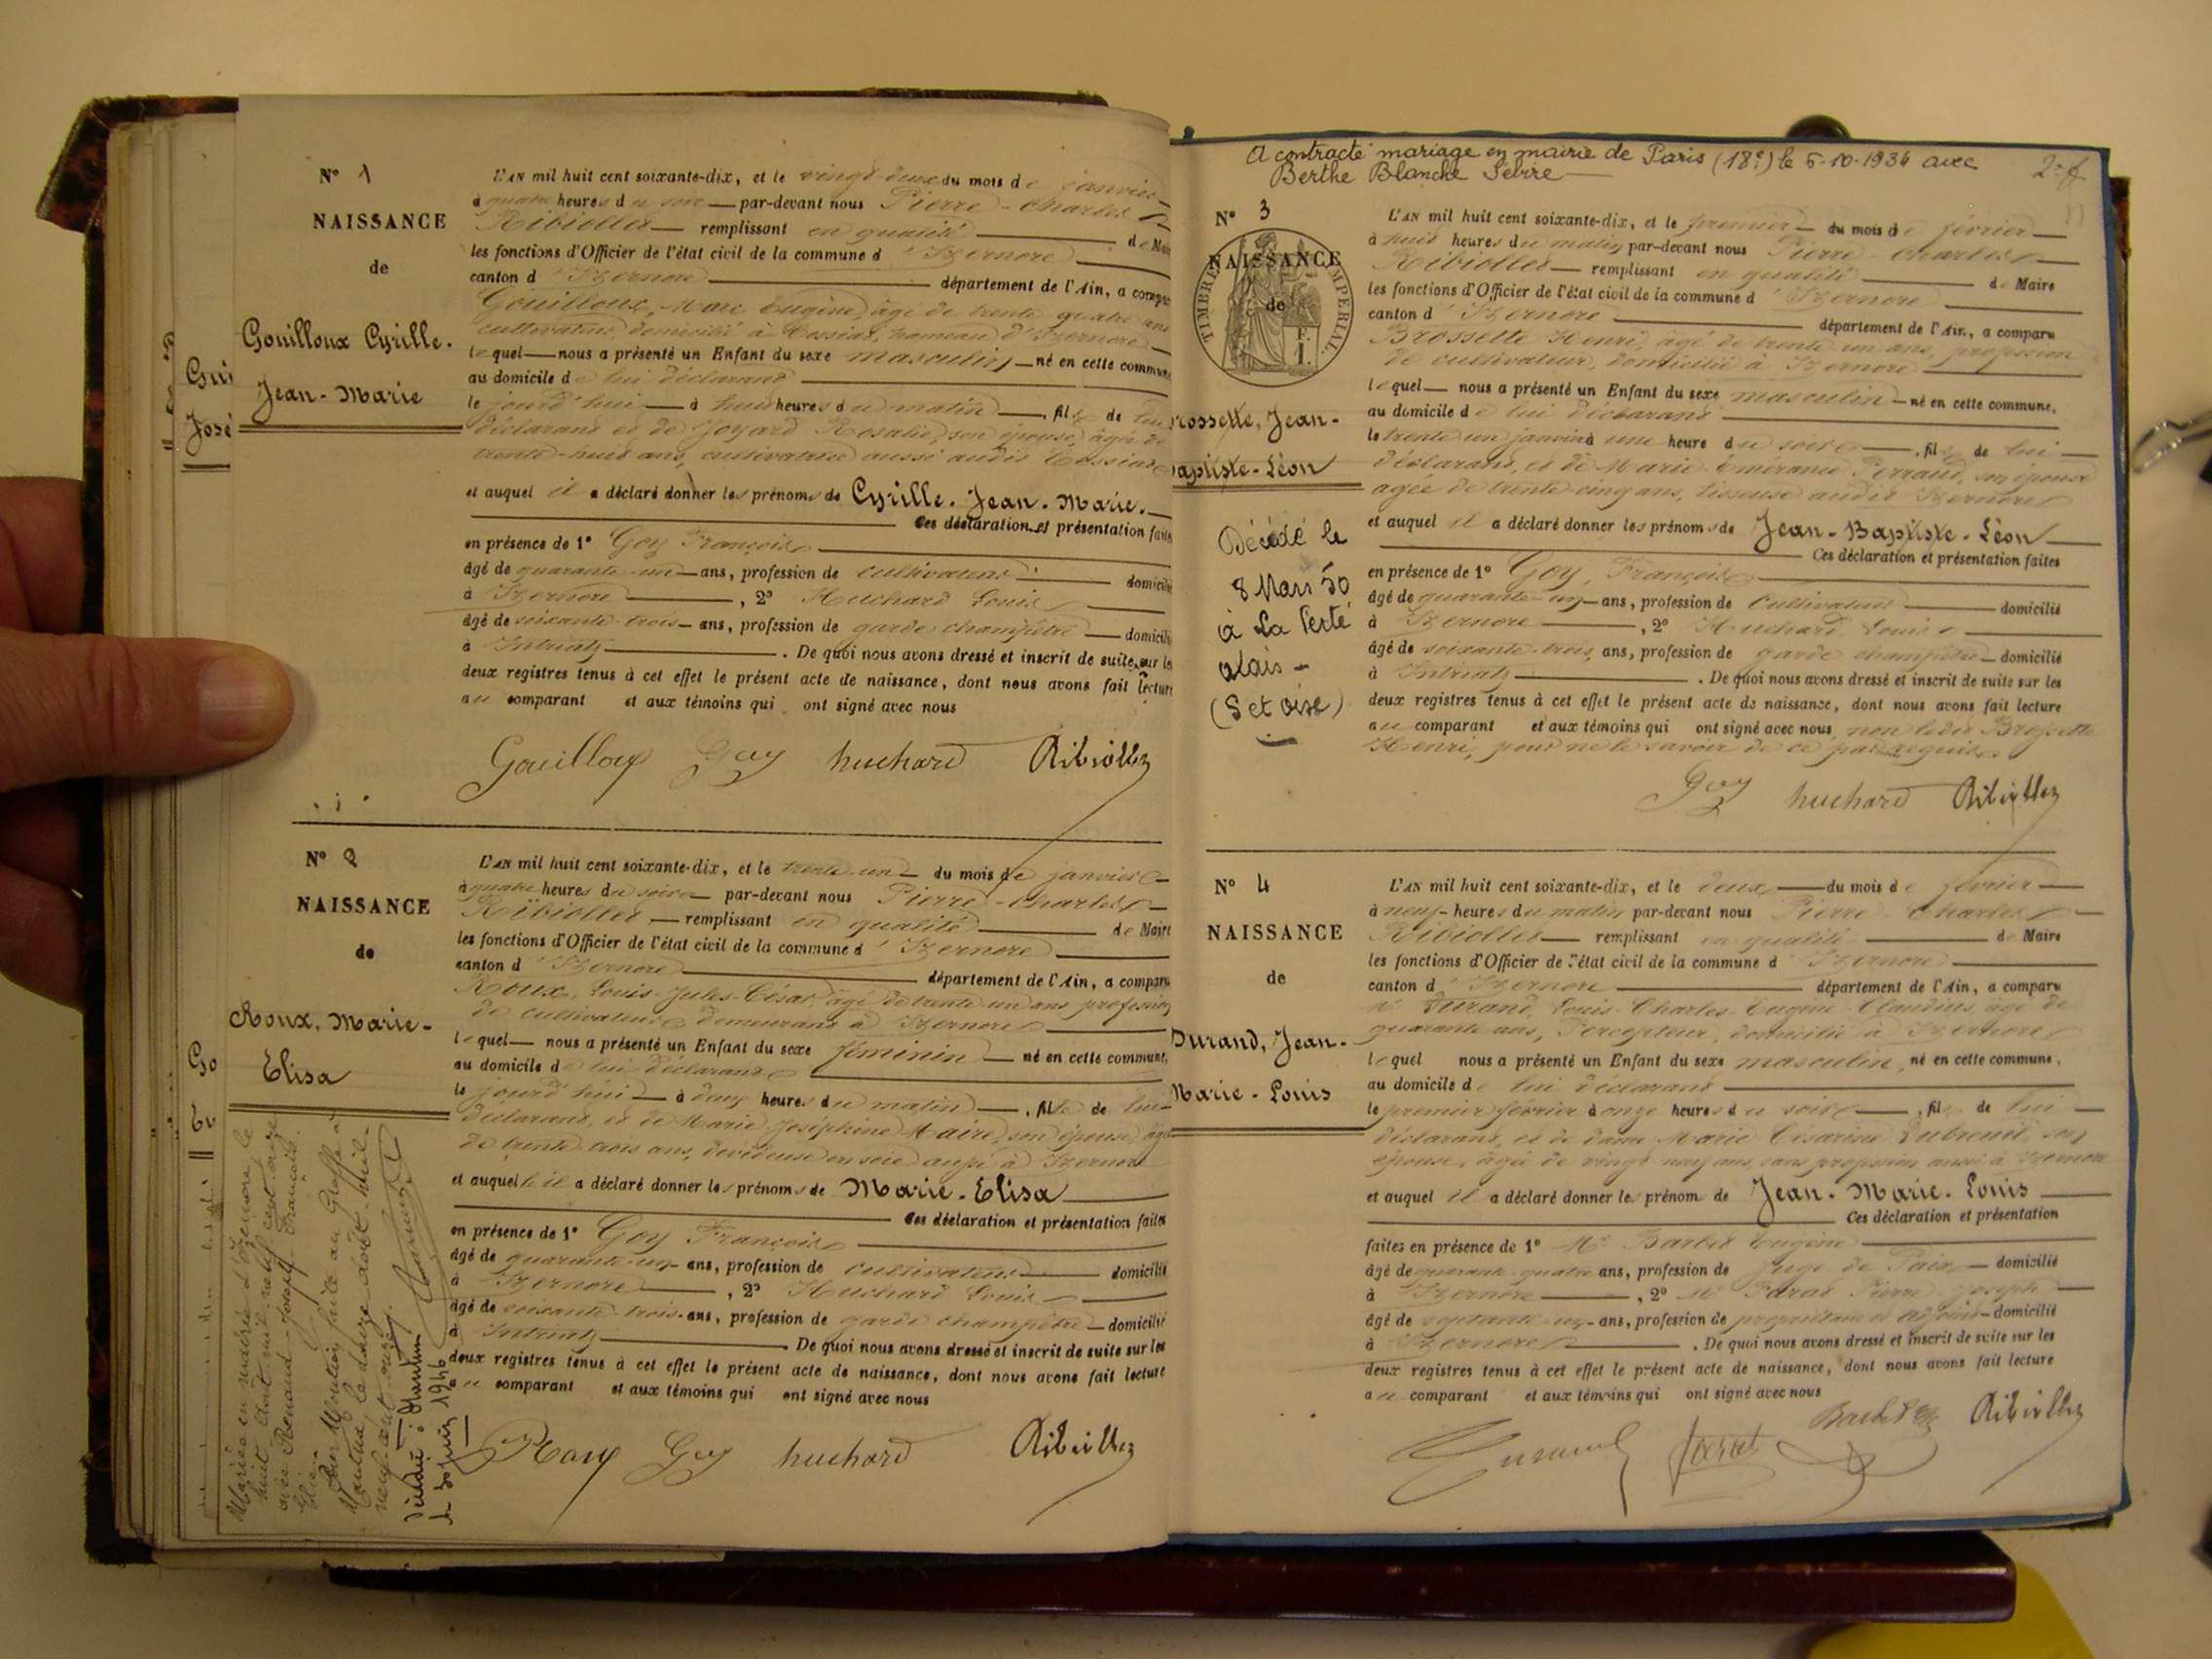 N° 1
NAISSANCE
de
Gouilloux Cyrille.
Jean-Marie
L'AN mil huit cent soixante-dix, et le vingt-deux du mois de janvier
à quatre heures du soir par-devant nous Pierre-Charles
Ribiollet remplissant en qualité de Mai
les fonctions d'Officier de l'état civil de la commune d'Izernore
canton d'Izernore département de l'Ain, a compa
Gouilloux, Marc Eugène, âgé de trente quatre ans
cultivateur domicilié à Cessiat, hameau d'Izernore
lequel nous a présenté un Enfant du sexe masculin né en cette commune
au domicile de lui déclarant
le jourd'hui à huit heures du matin, fils de lui
déclarant et de Joyard Rosalie, son épouse, âgée de
trente-huit ans, cultivatrice aussi audit Cessiat
et auquel il a déclaré donner les prénoms de Cyrille. Jean. Marie.
Ces déclaration et présentation faites
en présence de 1° Goy François
âgé de quarante-un ans, profession de cultivateur domicilié
à Izernore, 2° Huchard Louis
âgé de soixante-trois ans, profession de garde champêtre domicili
à Intriatz. De quoi nous avons dressé et inscrit de suite sur les
deux registres tenus à cet effet le présent acte de naissance, dont nous avons fait lecture
au comparant et aux témoins qui ont signé avec nous
Gouilloux Goy huchard Ribiollet
N° 2
NAISSANCE
de
Roux, Marie-
Elisa
L'AN mil huit cent soixante-dix, et le trente-un du mois de janvier
à quatre heures du soir par-devant nous Pierre-Charles
Ribiollet remplissant en qualité de Maire
les fonctions d'Officier de l'état civil de la commune d'Izernore
canton d'Izernore département de l'Ain, a compar
Roux, Louis-Jules-César, âgé de trente-un ans profession
de cultivateur demeurant à Izernore
lequel nous a présenté un Enfant du sexe féminin né en cette commune,
au domicile de lui déclarant
le jourd'hui à deux heures du matin, fille de lui
déclarant, et de Marie Joséphine Maire, son épouse, âgée
de trente-trois ans, dévideuse en soie aussi à Izernore
et auquelle il a déclaré donner les prénoms de Marie-Elisa
Ces déclaration et présentation faites
en présence de 1° Goy François
âgé de quarante-un ans, profession de cultivateur domicilié
à Izernore, 2° Huchard Louis
âgé de soixante-trois ans, profession de garde champêtre domicilié
à Intriatz. De quoi nous avons dressé et inscrit de suite sur les
deux registres tenus à cet effet le présent acte de naissance, dont nous avons fait lecture
au comparant et aux témoins qui ont signé avec nous
Roux Goy huchard Ribiollet
Mariée en mairie d'Izernore le
huit cent quatre
avec Renaud-Joseph François
Nantua le douze août mil-
neuf cent onze.
le 30 juin 1946
A contracté mariage en mairie de Paris (18e) le 6-10-1934 avec
Berthe Blanche Sebire
N° 3
NAISSANCE
de
TIMBRE IMPERIAL
rossette, Jean-
aptiste-Léon
Décédé le
8 Mars 50
à La Ferté
alais -
(S et oise)
L'AN mil huit cent soixante-dix, et le premier du mois de février
à huit heures du matin par-devant nous Pierre-Charles
Ribiollet remplissant en qualité de Maire
les fonctions d'Officier de l'état civil de la commune d'Izernore
canton d'Izernore département de l'Ain, a comparu
Brossette Henri, âgé de trente-un ans, profession
de cultivateur, domicilié à Izernore
lequel nous a présenté un Enfant du sexe masculin né en cette commune,
au domicile de lui déclarant
le trente-un janvier à une heure du soir, fils de lui
déclarant, et de Marie Emérance Perraud, son épouse
agée de trente-cinq ans, tisseuse audit Izernore
et auquel il a déclaré donner les prénoms de Jean-Baptiste-Léon
Ces déclaration et présentation faites
en présence de 1° Goy, François
âgé de quarante-un ans, profession de cultivateur domicilié
à Izernore, 2° Huchard Louis
âgé de soixante-trois ans, profession de garde champêtre domicilié
à Intriatz. De quoi nous avons dressé et inscrit de suite sur les
deux registres tenus à cet effet le présent acte de naissance, dont nous avons fait lecture
au comparant et aux témoins qui ont signé avec nous non ledit Brossette
Henri, pour ne le savoir de ce par requis.
Goy huchard Ribiollet
N° 4
NAISSANCE
de
Durand, Jean-
Marie-Louis
L'AN mil huit cent soixante-dix, et le deux du mois de février
à neuf heures du matin par-devant nous Pierre-Charles
Ribiollet remplissant en qualité de Maire
les fonctions d'Officier de l'état civil de la commune d'Izernore
canton d'Izernore département de l'Ain, a comparu
Mr Durand, Louis-Charles-Eugène-Claudius, âgé de
quarante ans, Percepteur, domicilié à Izernore
lequel nous a présenté un Enfant du sexe masculin, né en cette commune,
au domicile de lui déclarant
le premier février à onze heures du soir, fils de lui
déclarant, et de dame Marie Césarine Dubreuil, son
épouse, âgée de vingt neuf ans, sans profession aussi à Izernore
et auquel il a déclaré donner les prénom de Jean-Marie-Louis
Ces déclaration et présentation
faites en présence de 1° Mr Barbet Eugène
âgé de quarante-quatre ans, profession de Juge de Paix domicilié
à Izernore, 2° Mr Farat Pierre Joseph
âgé de septante-un ans, profession de propriétaire et adjoint domicilié
à Izernore. De quoi nous avons dressé et inscrit de suite sur les
deux registres tenus à cet effet le présent acte de naissance, dont nous avons fait lecture
au comparant et aux témoins qui ont signé avec nous
Durand Farat Barbet Ribiollet